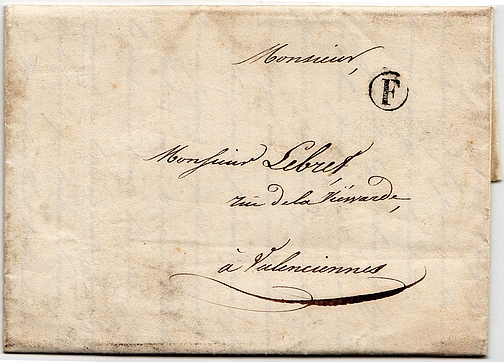 Monsieur,
F
Monsieur Lebret,
rüe de la Viéwarde,
à Valenciennes